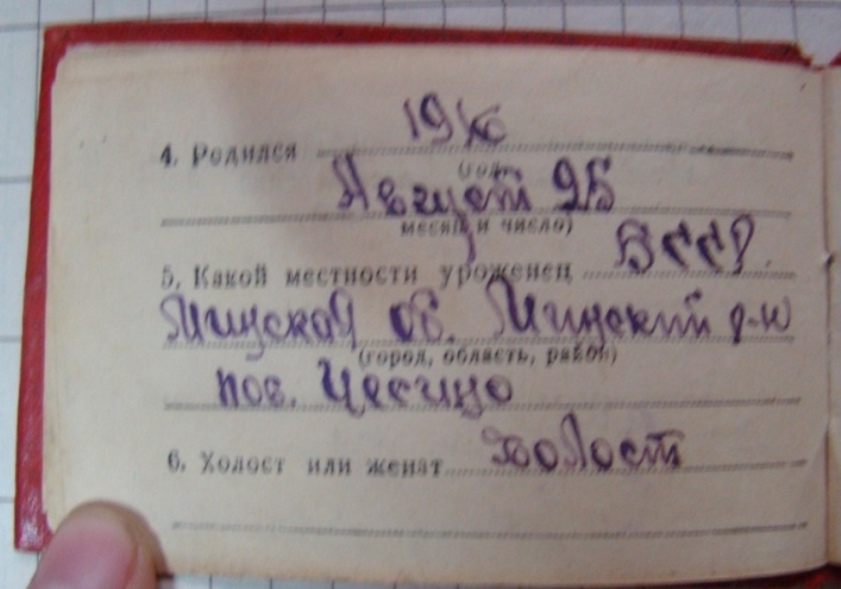 4. Родился 1916
(год)
Август 25
месяц и число)
5. Какой местности уроженец БССР.
Минской об. Минский р-н
(город, область, район)
пос.
6. Холост или женат холост